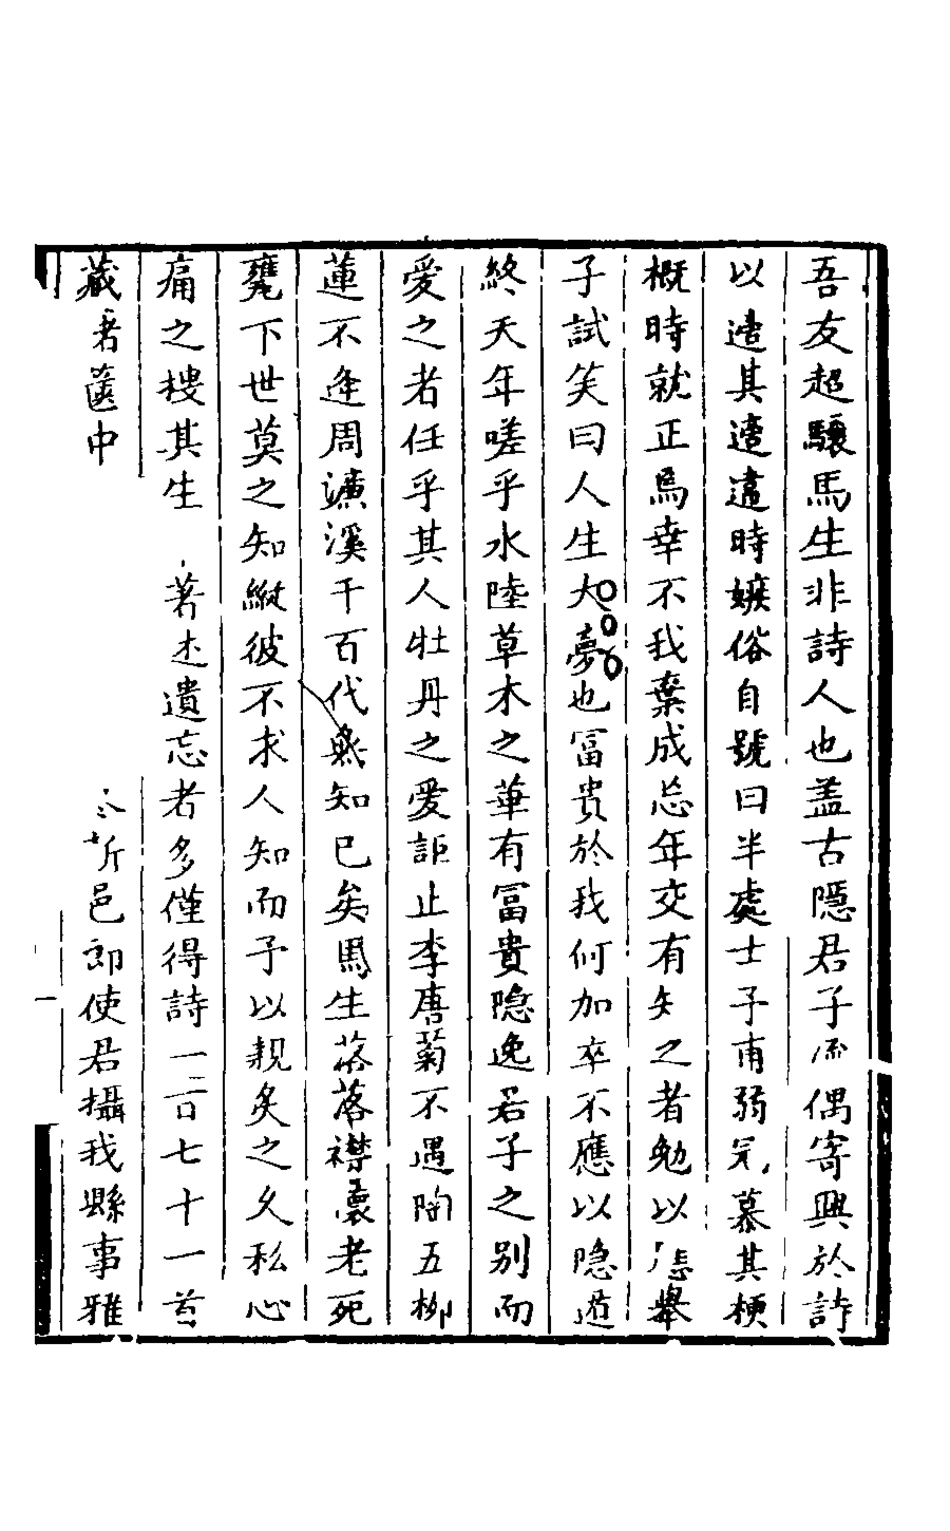 吾友超驤馬生非詩人也盖古隱君子流偶寄興於詩
以遣其邅違時嫉俗自號曰半處士予甫弱冠慕其梗
概時就正焉幸不我棄成忘年交有知之者勉以應舉
子試笑曰人生大夢也冨貴於我何加卒不應以隐逰
終天年嗟乎水陸草木之華有冨貴隐逸君子之别而
愛之者任乎其人牡丹之愛詎止李唐菊不遇陶五柳
蓮不逢周濂溪千百代無知已矣馬生落落襟懷老死
甕下世莫之知縱彼不求人知而予以親炙之久私心
痛之搜其生 著述遺忘者多僅得詩一百七十一首
藏者篋中 析邑郎使君攝我縣事雅